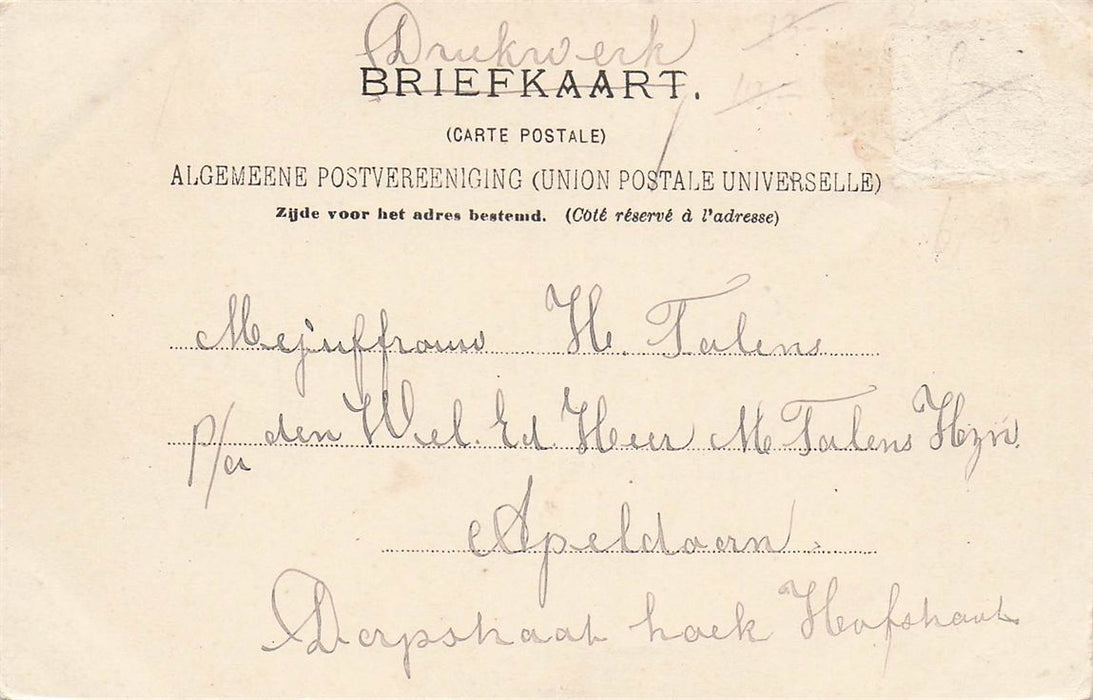 Drukwerk
BRIEFKAART.
(CARTE POSTALE)
ALGEMEENE POSTVEREENIGING (UNION POSTALE UNIVERSELLE)
Zijde voor het adres bestemd. (Côté réservé à l'adresse)
Mejuffrouw H. Talens
p/a den Wel. Ed Heer M Talens Hzn.
Apeldoorn.
Dorpstraat hoek Hofstraat